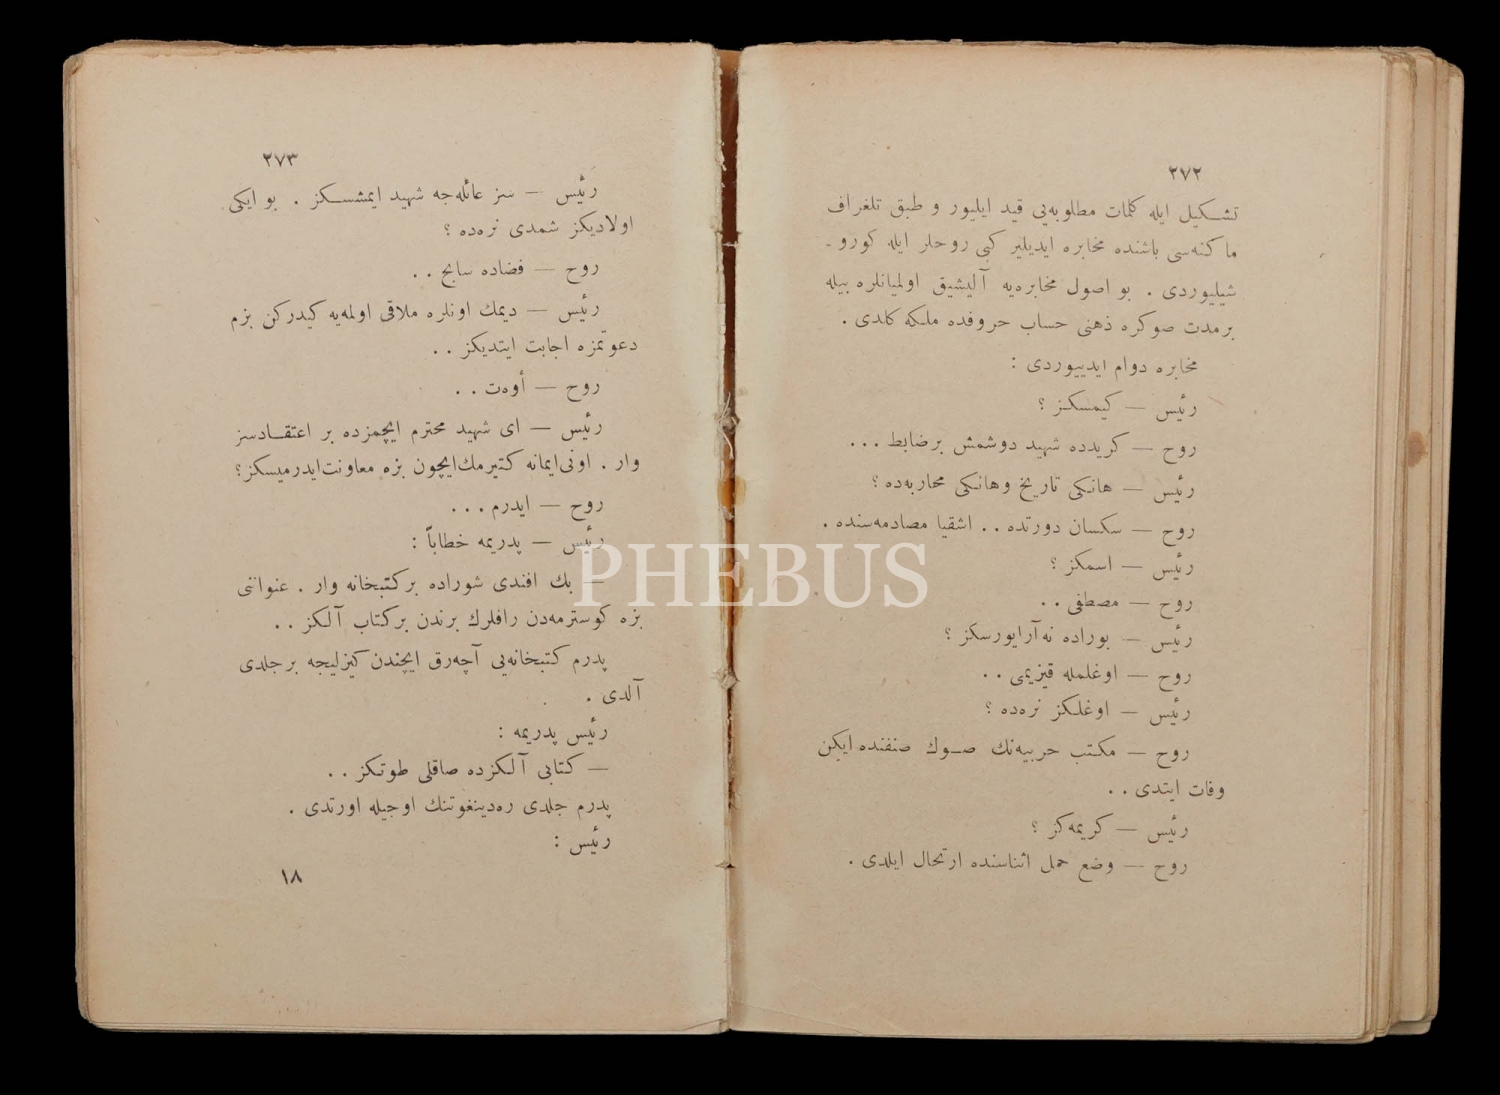 ٢٧٢
تشكيل ايله كلمات مطلوبه‌يى قيد ايليور و طبق تلغراف
ماكنه‌سى باشنده مخابره ايديلير كبى روحلر ايله كورو ـ
شيليوردى . بو اصول مخابره‌يه آليشيق اولميانلره بيله
برمدت صوكره ذهنى حساب حروفده ملكه كلدى .
مخابره دوام ايدييوردى :
رئيس — كيمسكز ؟
روح — كريدده شهيد دوشمش برضابط ...
رئيس — هانكى تاريخ وهانكى محاربه‌ده ؟
روح — سكسان دورتده .. اشقيا مصادمه‌سنده .
رئيس — اسمكز ؟
روح — مصطفى ..
رئيس — بوراده نه آرايورسكز ؟
روح — اوغلمله قيزيمى ..
رئيس — اوغلكز نره‌ده ؟
روح — مكتب حربيه‌نك صوك صنفنده ايكن
وفات ايتدى ..
رئيس — كريمه‌كز ؟
روح — وضع حمل اثناسنده ارتحال ايلدى .
٢٧٣
رئيس — سز عائله‌جه شهيد ايمشسكز . بو ايكى
اولاديكز شمدى نره‌ده ؟
روح — فضاده سابح ..
رئيس — ديمك اونلره ملاقى اولمه‌يه كيدركن بزم
دعوتمزه اجابت ايتديكز ..
روح — أوه‌ت ..
رئيس — اى شهيد محترم ايچمزده بر اعتقادسز
وار . اونى ايمانه كتيرمك ايچون بزه معاونت ايدرميسكز ؟
روح — ايدرم ...
رئيس — پدريمه خطاباً :
— بك افندى شوراده بركتبخانه وار . عنواننى
بزه كوسترمه‌دن رافلرك برندن بركتاب آلكز ..
پدرم كتبخانه‌يى آچه‌رق ايچندن كيزليجه برجلدى
آلدى .
رئيس پدريمه :
— كتابى آلكزده صاقلى طوتكز ..
پدرم جلدى ره‌دينغوتنك اوجيله اورتدى .
رئيس :
١٨
PHEBUS